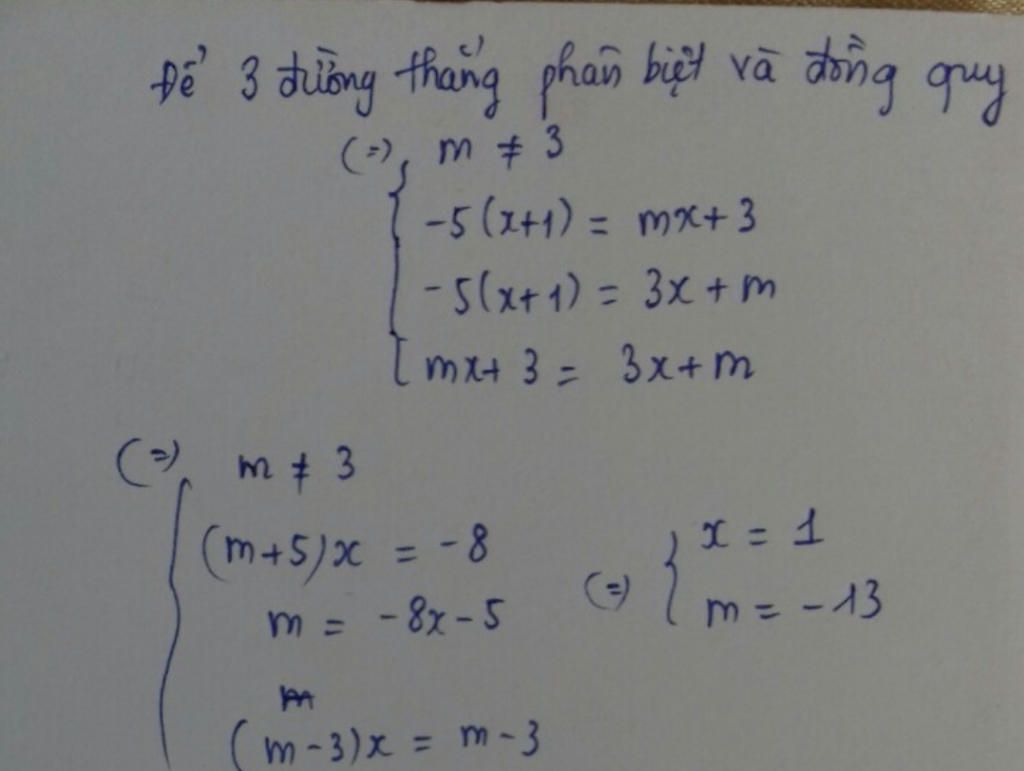 Để 3 đường thẳng phân biệt và đồng quy
(=) m ≠ 3
-5(x+1) = mx+3
-5(x+1) = 3x+m
mx+3 = 3x+m
(=) m ≠ 3
(m+5)x = -8
m = -8x-5
m
(m-3)x = m-3
(=) x = 1
m = -13